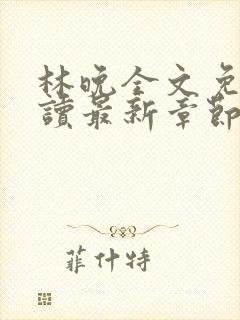 林晚全文免
讀最新章節
菲什特